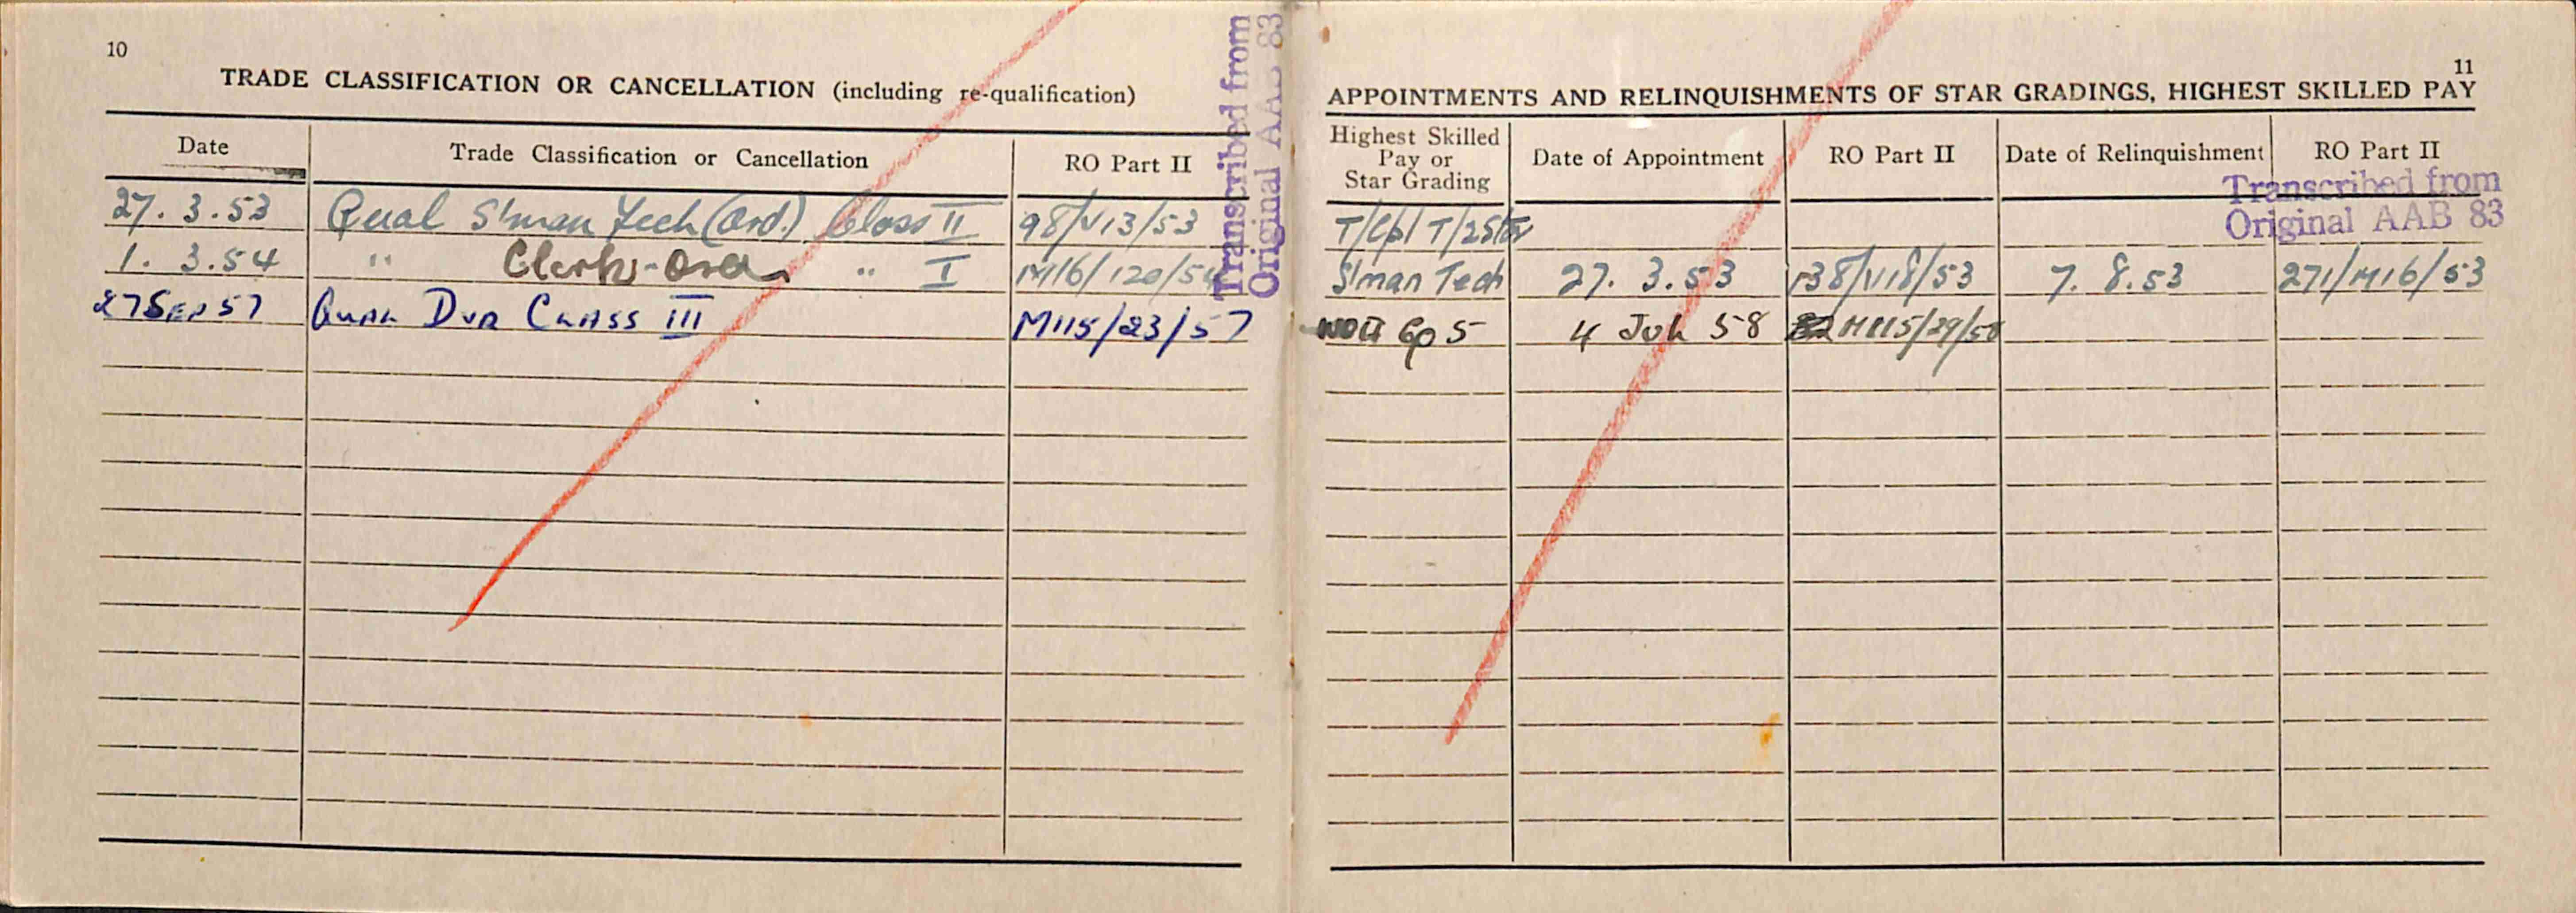 10
TRADE CLASSIFICATION OR CANCELLATION (including re-qualification)
Date Trade Classification or Cancellation RO Part II
27. 3. 53 Qual S'man Tech (Ord.) Class II 98/V13/53
1. 3. 54 " Clerk- " I M16/120/54
27 SEP 57 QUAL DVR CLASS III M115/23/57
Transcribed from
Original AAB 83
11
APPOINTMENTS AND RELINQUISHMENTS OF STAR GRADINGS, HIGHEST SKILLED PAY
Highest Skilled
Pay or
Star Grading
Date of Appointment RO Part II Date of Relinquishment RO Part II
Transcribed from
Original AAB 83
T/Cpl T/2Star
S'man Tech 27. 3. 53 138/V18/53 7. 8. 53 271/M16/53
WOII Gp 5 4 58